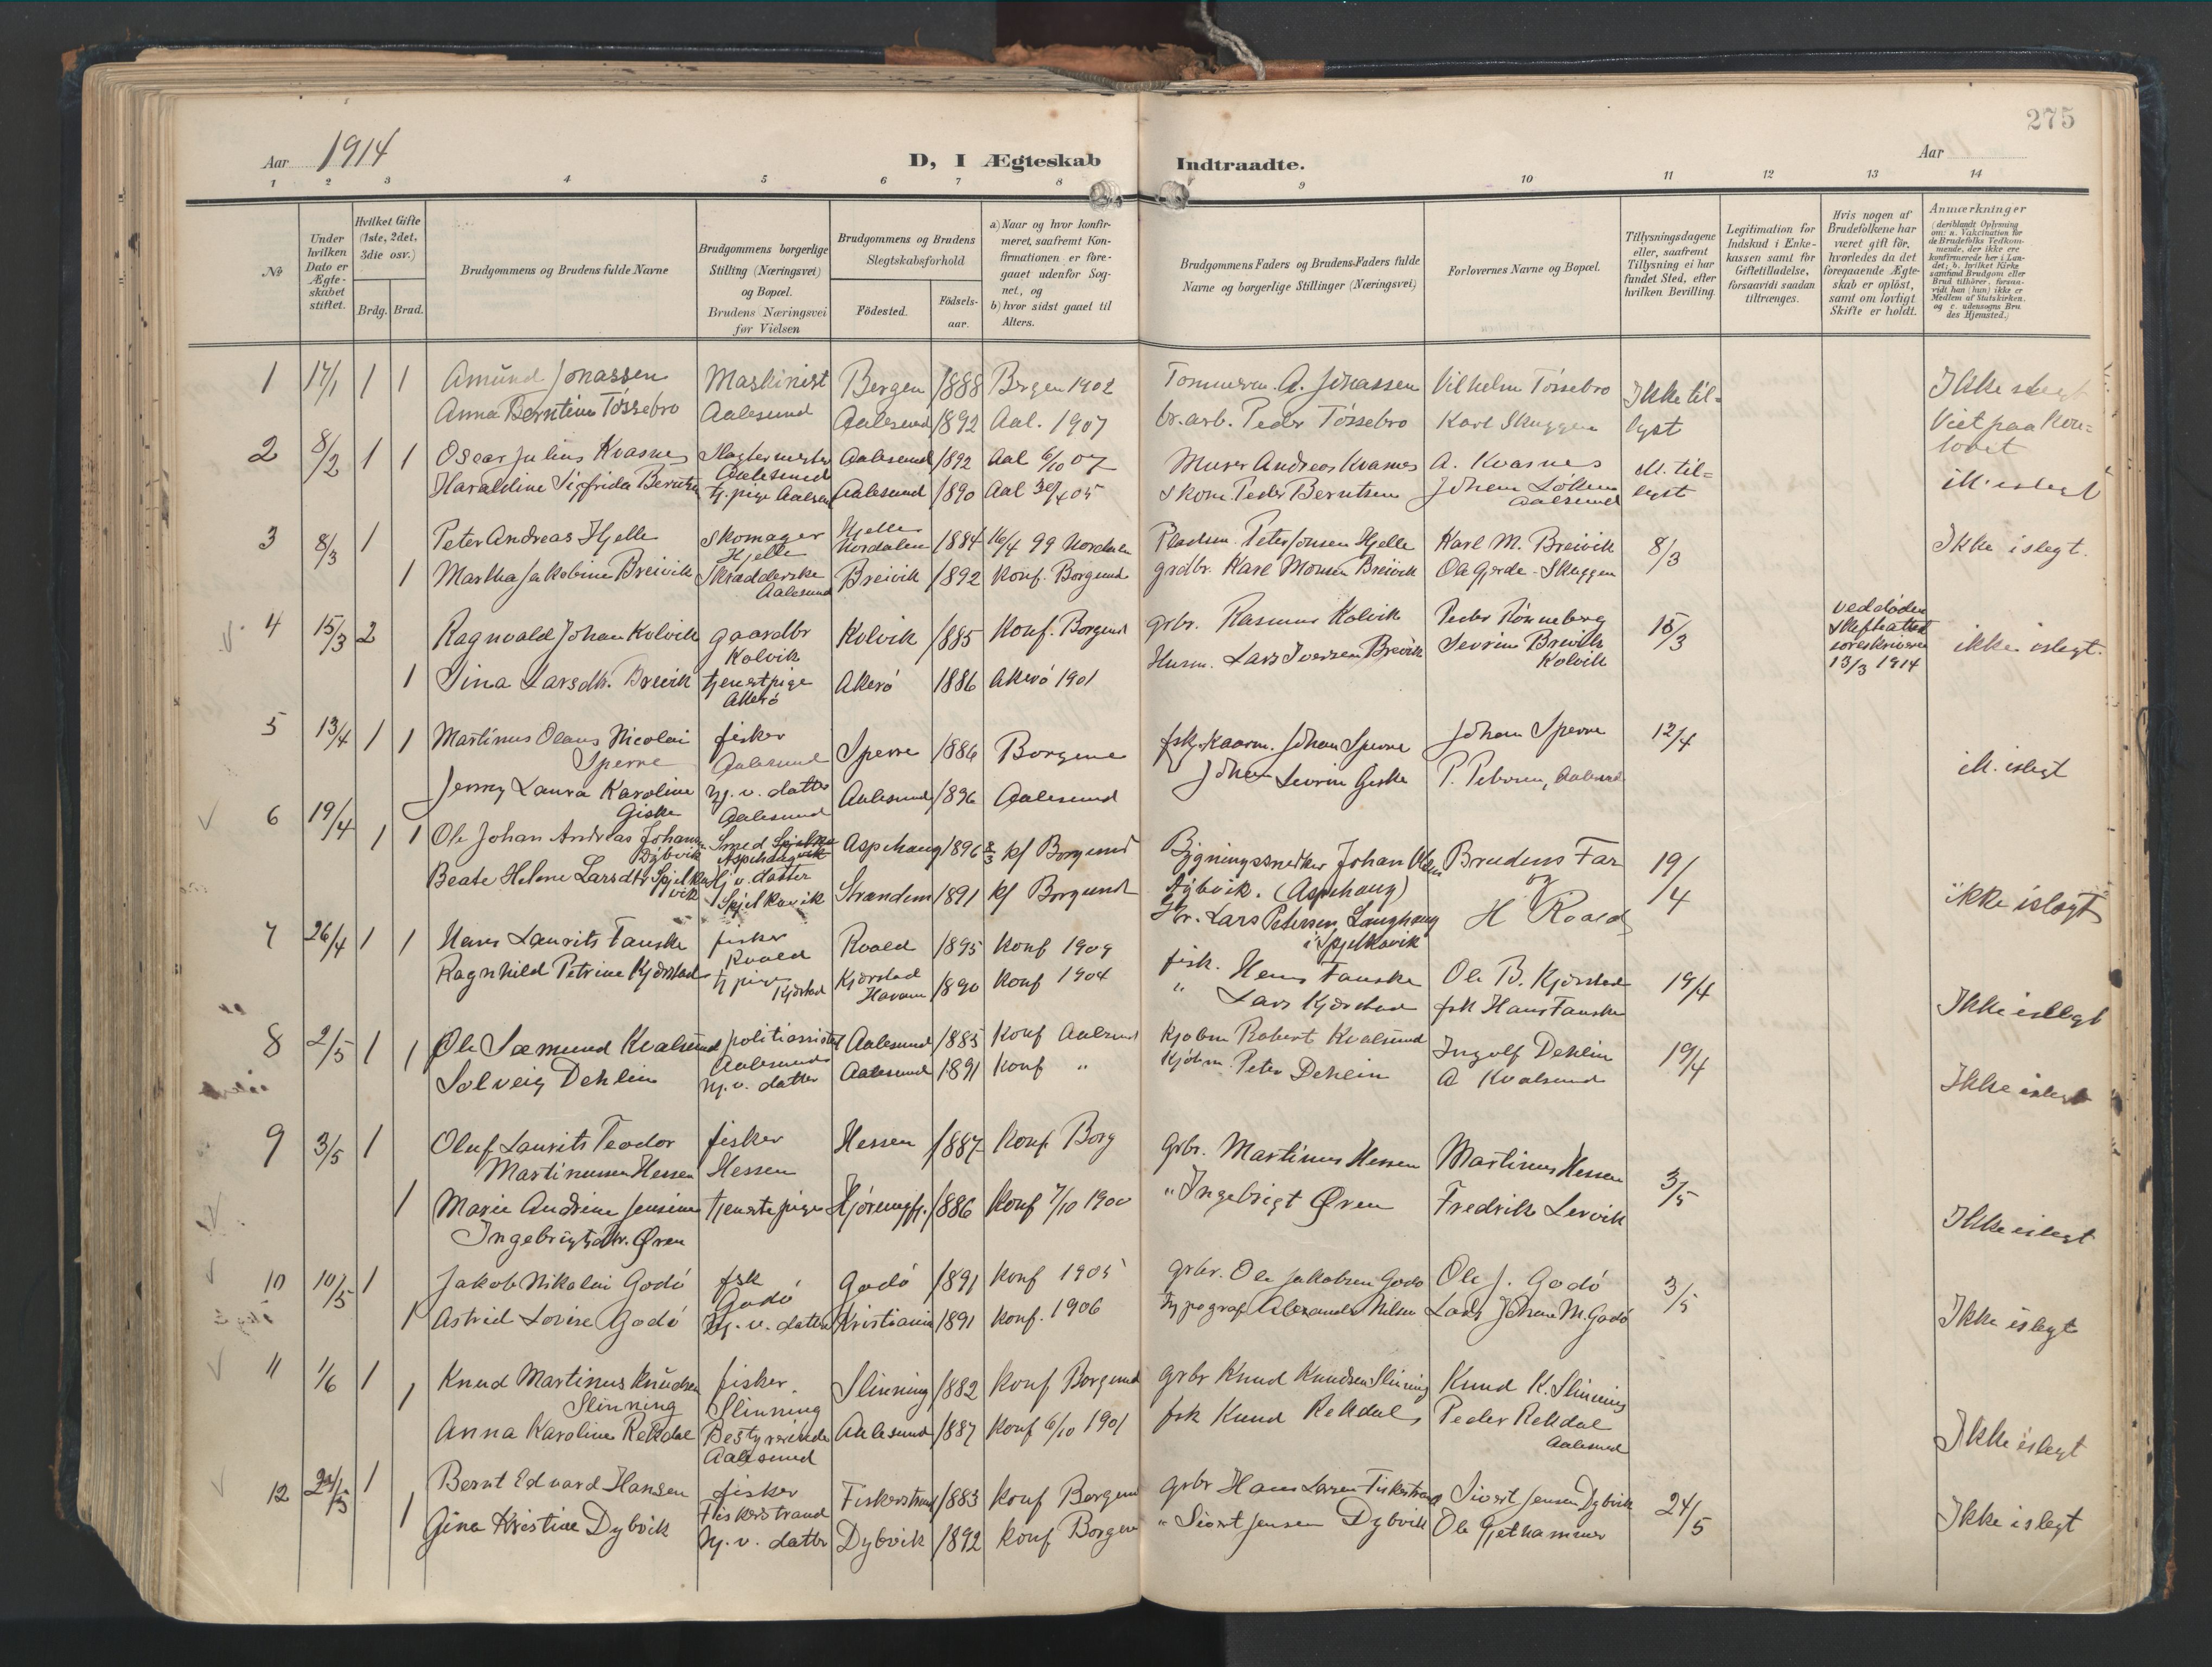 275
Aar 1914
D, I Ægteskab Indtraadte.
Aar
1 2 3 4 5 6 7 8 9 10 11 12 13 14
No
Under hvilken Dato er Ægteskabet stiftet.
Hvilket Gifte (1ste, 2det, 3die osv.)
Brdg. Brud.
Brudgommens og Brudens fulde Navne
Brudgommens borgerlige Stilling (Næringsvei) og Bopæl. Brudens Næringsvei før Vielsen
Brudgommens og Brudens Slegtskabsforhold
Fødested. Fødselsaar.
a) Naar og hvor konfirmeret, saafremt Konfirmationen er foregaaet udenfor Sognet, og
b) hvor sidst gaaet til Alters.
Brudgommens Faders og Brudens Faders fulde Navne og borgerlige Stillinger (Næringsvei)
Forlovernes Navne og Bopæl.
Tillysningsdagene eller, saafremt Tillysning ei har fundet Sted, efter hvilken Bevilling.
Legitimation for Indskud i Enkekassen samt for Giftetilladelse, forsaavidt saadan tiltrænges.
Hvis nogen af Brudefolkene har været gift før, hvorledes da det foregaaende Ægteskab er opløst, samt om lovligt Skifte er holdt.
Anmærkninger
(deriblandt Oplysning om: a. Vakcination for de Brudefolks Vedkommende, der ikke ere konfirmerede her i Landet; b. hvilket Kirkesamfund Brudgom eller Brud tilhører, forsaavidt han (hun) ikke er Medlem af Statskirken. og c. udensogns Brudes Hjemsted.)
1 17/1 1 1 Amund Jonassen Maskinist Bergen 1888 Bergen 1902 Tømmerm. A. Jonassen Vilhelm Tøssebro Ikke til=
Anna Berntine Tøssebro Aalesund Aalesund 1892 Aal. 1907 br. arb. Peder Tøssebro Karl Skuggen lyst
Ikke islegt
Viet paa kon=
toret
2 8/2 1 1 Oscar Julius Kvasnes Slagtermester Aalesund 1892 Aal 6/10 07 Murer Andreas Kvasnes A. Kvasnes ikk. til=
Aalesund
Haraldine Sigfrida Berntsen tj. pige Aalesund Aalesund 1890 Aal 30/4 05 Skom. Peder Berntsen Johan
Aalesund lyst
ik. islegt
3 8/3 1 Peter Andreas Hjelle Skomager Hjelle
Hjelle Nordalen 1884 16/4 99 Nordalen Pladsm. Peter Jonsen Hjelle Karl M. Breivik 8/3 Ikke islegt.
1 Martha Jakobine Breivik Skrædderske Breivik 1892 Konf. Borgund grdbr. Karl Monsen Breivik Ole Gjerde - Skuggen
Aalesund
4 15/3 2 Ragnvald Johan Kolvik gaardbr Kolvik 1885 Konf. Borgund grbr. Rasmus Kolvik Peder Rønneberg 15/3 ikke islegt.
Kolvik
ved døden
Skifteattest
sorenskriveren
13/3 1914
1 Sina Larsdtr. Breivik tjenestpige Akerö 1886 Akerö 1901 Husm. Lars Iversen Breivik Severin Breivik
Akerö Kolvik
5 13/4 1 1 Martinus Olaus Nicolai fisker Sperre 1886 Borgund Johan Sperre Johan Sperre 12/4
Sperre Aalesund
Jenny Laura Karoline hj. v. datter Aalesund 1896 Aalesund Johan Severin Giske P. Petersen, Aalesund ik. islegt
Giske Aalesund
6 19/4 1 1 Ole Johan Andreas Johansen Smed Aspehaug 1896 kf Borgund Bygningssnedker Johan Olsen Brudens Far 19/4
Dybvik Aspehaug Dybvik. (Aspehaug) og
Beate Helene Larsdtr Spjelkavik Hj v. datter Stranden 1891 kf Borgund Gbr. Lars Petersen Langhaug H Roald ikke islegt
Spjelkavik i Spjelkavik
7 26/4 1 1 Hans Laurits Fauske fisker Roald 1895 Konf 1909 fisk. Hans Fauske Ole B. Kjørstad 19/4
Roald
Ragnhild Petrine Kjørstad tj pige Kjørstad 1890 Konf 1904 " Lars Kjørstad fsk Hans Fauske Ikke islegt
Kjørstad Haram
8 2/5 1 1 Ole Sæmund Kvalsund politiassistent Aalesund 1885 Konf Aalesund Kjøbm Robert Kvalsund Ingolf Dehlin 19/4
Aalesund
Solveig Dehlin hj. v. datter Aalesund 1891 Konf " Kjøbm. Peter Dehlin A Kvalsund Ikke islegt
9 3/5 1 Oluf Laurits Teodor fisker Hessen 1887 Konf Borg grbr. Martinus Hessen Martinus Hessen 3/5
Martinussen Hessen Hessen
1 Marie Andrine Jensine tjenestepige 1886 Konf 7/10 1900 " Ingebrigt Øren Fredrik Lervik Ikke islegt
Ingebrigtsdtr. Øren
10 10/5 1 Jakob Nikolai Godö fsk Godö 1891 Konf 1905 grbr. Ole Jakobsen Godö Ole J. Godö 3/5
Godö
1 Astrid Lovise Godö Hj. v. datter Kristiania 1891 Konf. 1906 typograf Alexander Nilsen Lars Johan M. Godö Ikke islegt
11 1/6 1 1 Knud Martinus Knudsen fisker. Slinning 1882 Konf Borgund grbr Knud Knudsen Slinning Knud K. Slinning
Slinning Slinning
Anna Karoline Rekdal Bestyrerinde Aalesund 1887 Konf 6/10 1901 fsk Knud Rekdal Peder Rekdal Ikke islegt
Aalesund Aalesund
12 24/5 1 Bernt Edvard Hansen fisker Fiskerstrand 1883 Konf Borgund grbr Hans Larsen Fiskerstrand Sivert Jensen Dybvik 24/5
Fiskerstrand
1 Gina Kristine Dybvik Hj. v. datter Dybvik 1892 Konf Borgund " Sivert Jensen Dybvik Ole Gjethammer Ikke islegt